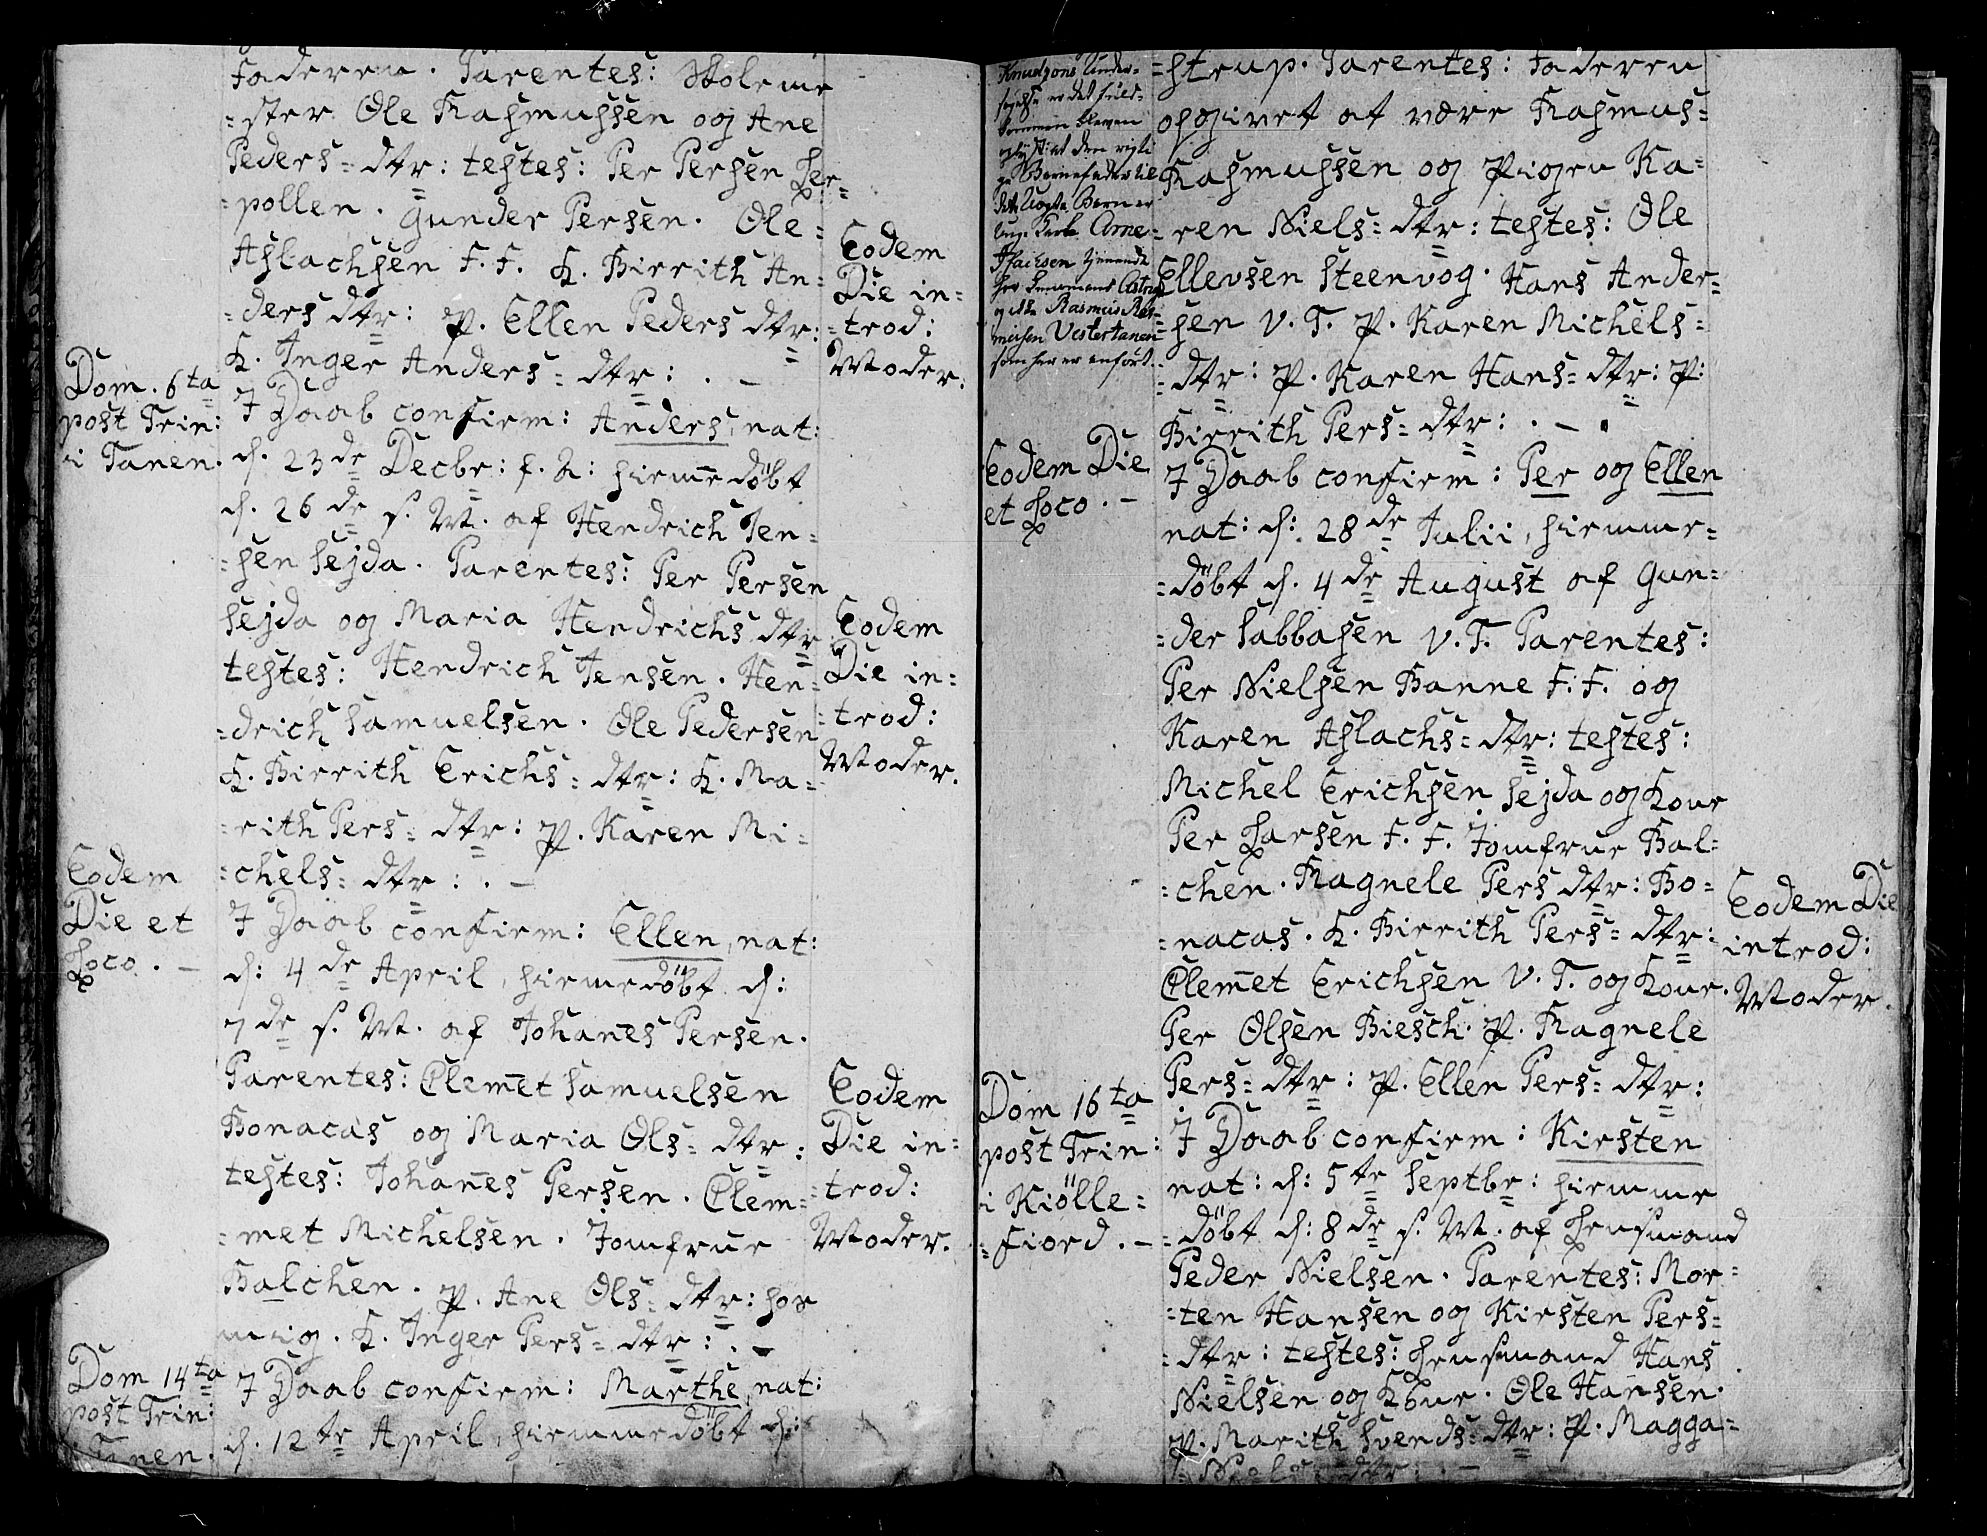 Faderen. Parentes: Skoleme
=ster Ole Rasmussen og Ane
Peders=dtr: testes: Per Persen Ler=
=pollen. Gunder Persen. Ole=
Aslachsen F.F. K. Birrith An=
=ders dtr: P. Ellen Peders dtr:
K. Inger Anders=dtr: . –
Eodem
Die in=
=trod:
Moder.
Dom. 6ta
post Trin:
i Tanen.
I Daab confirm: Anders, nat:
d. 23de Decbr: f. A: hiemedöbt
d. 26de s. M. af Hendrich Jen=
=sen Sejda. Parentes: Per Persen
Sejda og Maria Hendrichs dtr
testes: Hendrich Jensen. Hen=
=drich Samuelsen. Ole Pedersen
K. Birrith Erichs=dtr: K. Ma=
=rith Pers=dtr: P. Karen Mi=
=chels=dtr: . –
Eodem
Die in=
=trod:
Moder.
Eodem
Die et
Loco. –
I Daab confirm: Ellen, nat:
d: 4de April, hiemedöbt d:
7de s. M. af Johanes Persen.
Parentes: Clemet Samuelsen
Bonacas og Maria Ols=dtr:
testes: Johanes Persen. Clem=
=met Michelsen. Jomfrue
Balchen. P. Ane Ols=dtr: hos
mig. K. Inger Pers=dtr: . –
Eodem
Die in=
=trod:
Moder.
Dom 14ta
post Trin:
Tanen.
I Daab confirm: Marthe, nat:
d. 12te April, hiemmedöbt d:
Knudzons Under=
søgelse er det fuld=
kommen bleven
oplyst at den rigti
ge Barnefader til
dette Uægte Barn er
unge Karl Arne
Isachsen tjenende
hos
og ikke Rasmus Ras=
mussen Vestertanen
som her er anført.
=strup. Parentes: Faderen
opgivet at være Rasmus=
Rasmussen og Pigen Ka=
=ren Niels=dtr: testes: Ole
Ellevsen Steenvog. Hans Ander=
=sen V.T. P. Karen Michels=
=dtr: P. Karen Hans=dtr: P:
Birrith Pers=dtr: . – .
Eodem Die
et Loco. –
I Daab confirm: Per og Ellen
nat: d: 28de Julii, hiemme=
=döbt d. 4de August af Gun=
=der Sabbasen V.T. Parentes:
Per Nielsen Banne F.F. og
Karen Aslachs=dtr: testes:
Michel Erichsen Sejda og Kone
Per Larsen F.F. Jomfrue Bal=
=chen. Ragnele Pers dtr: Bo=
=nacas. K. Birrith Pers=dtr:
Clemet Erichsen V.T. og Kone.
Per Olsen Biesch. P. Ragnele
Pers=dtr: P. Ellen Pers=dtr:
Eodem Die
introd:
Moder.
Dom 16ta
post Trin:
i Kiölle=
=fiord. –
I Daab confirm: Kirsten
nat: d: 5te Septbr: hiemme
=döbt d: 8de s. M. af Lensmand
Peder Nielsen. Parentes: Mor=
=ten Hansen og Kirsten Pers=
=dtr: testes: Lensmand Hans
Nielsen og Kone. Ole Hansen.
P. Marith Svends=dtr: P. Magga=